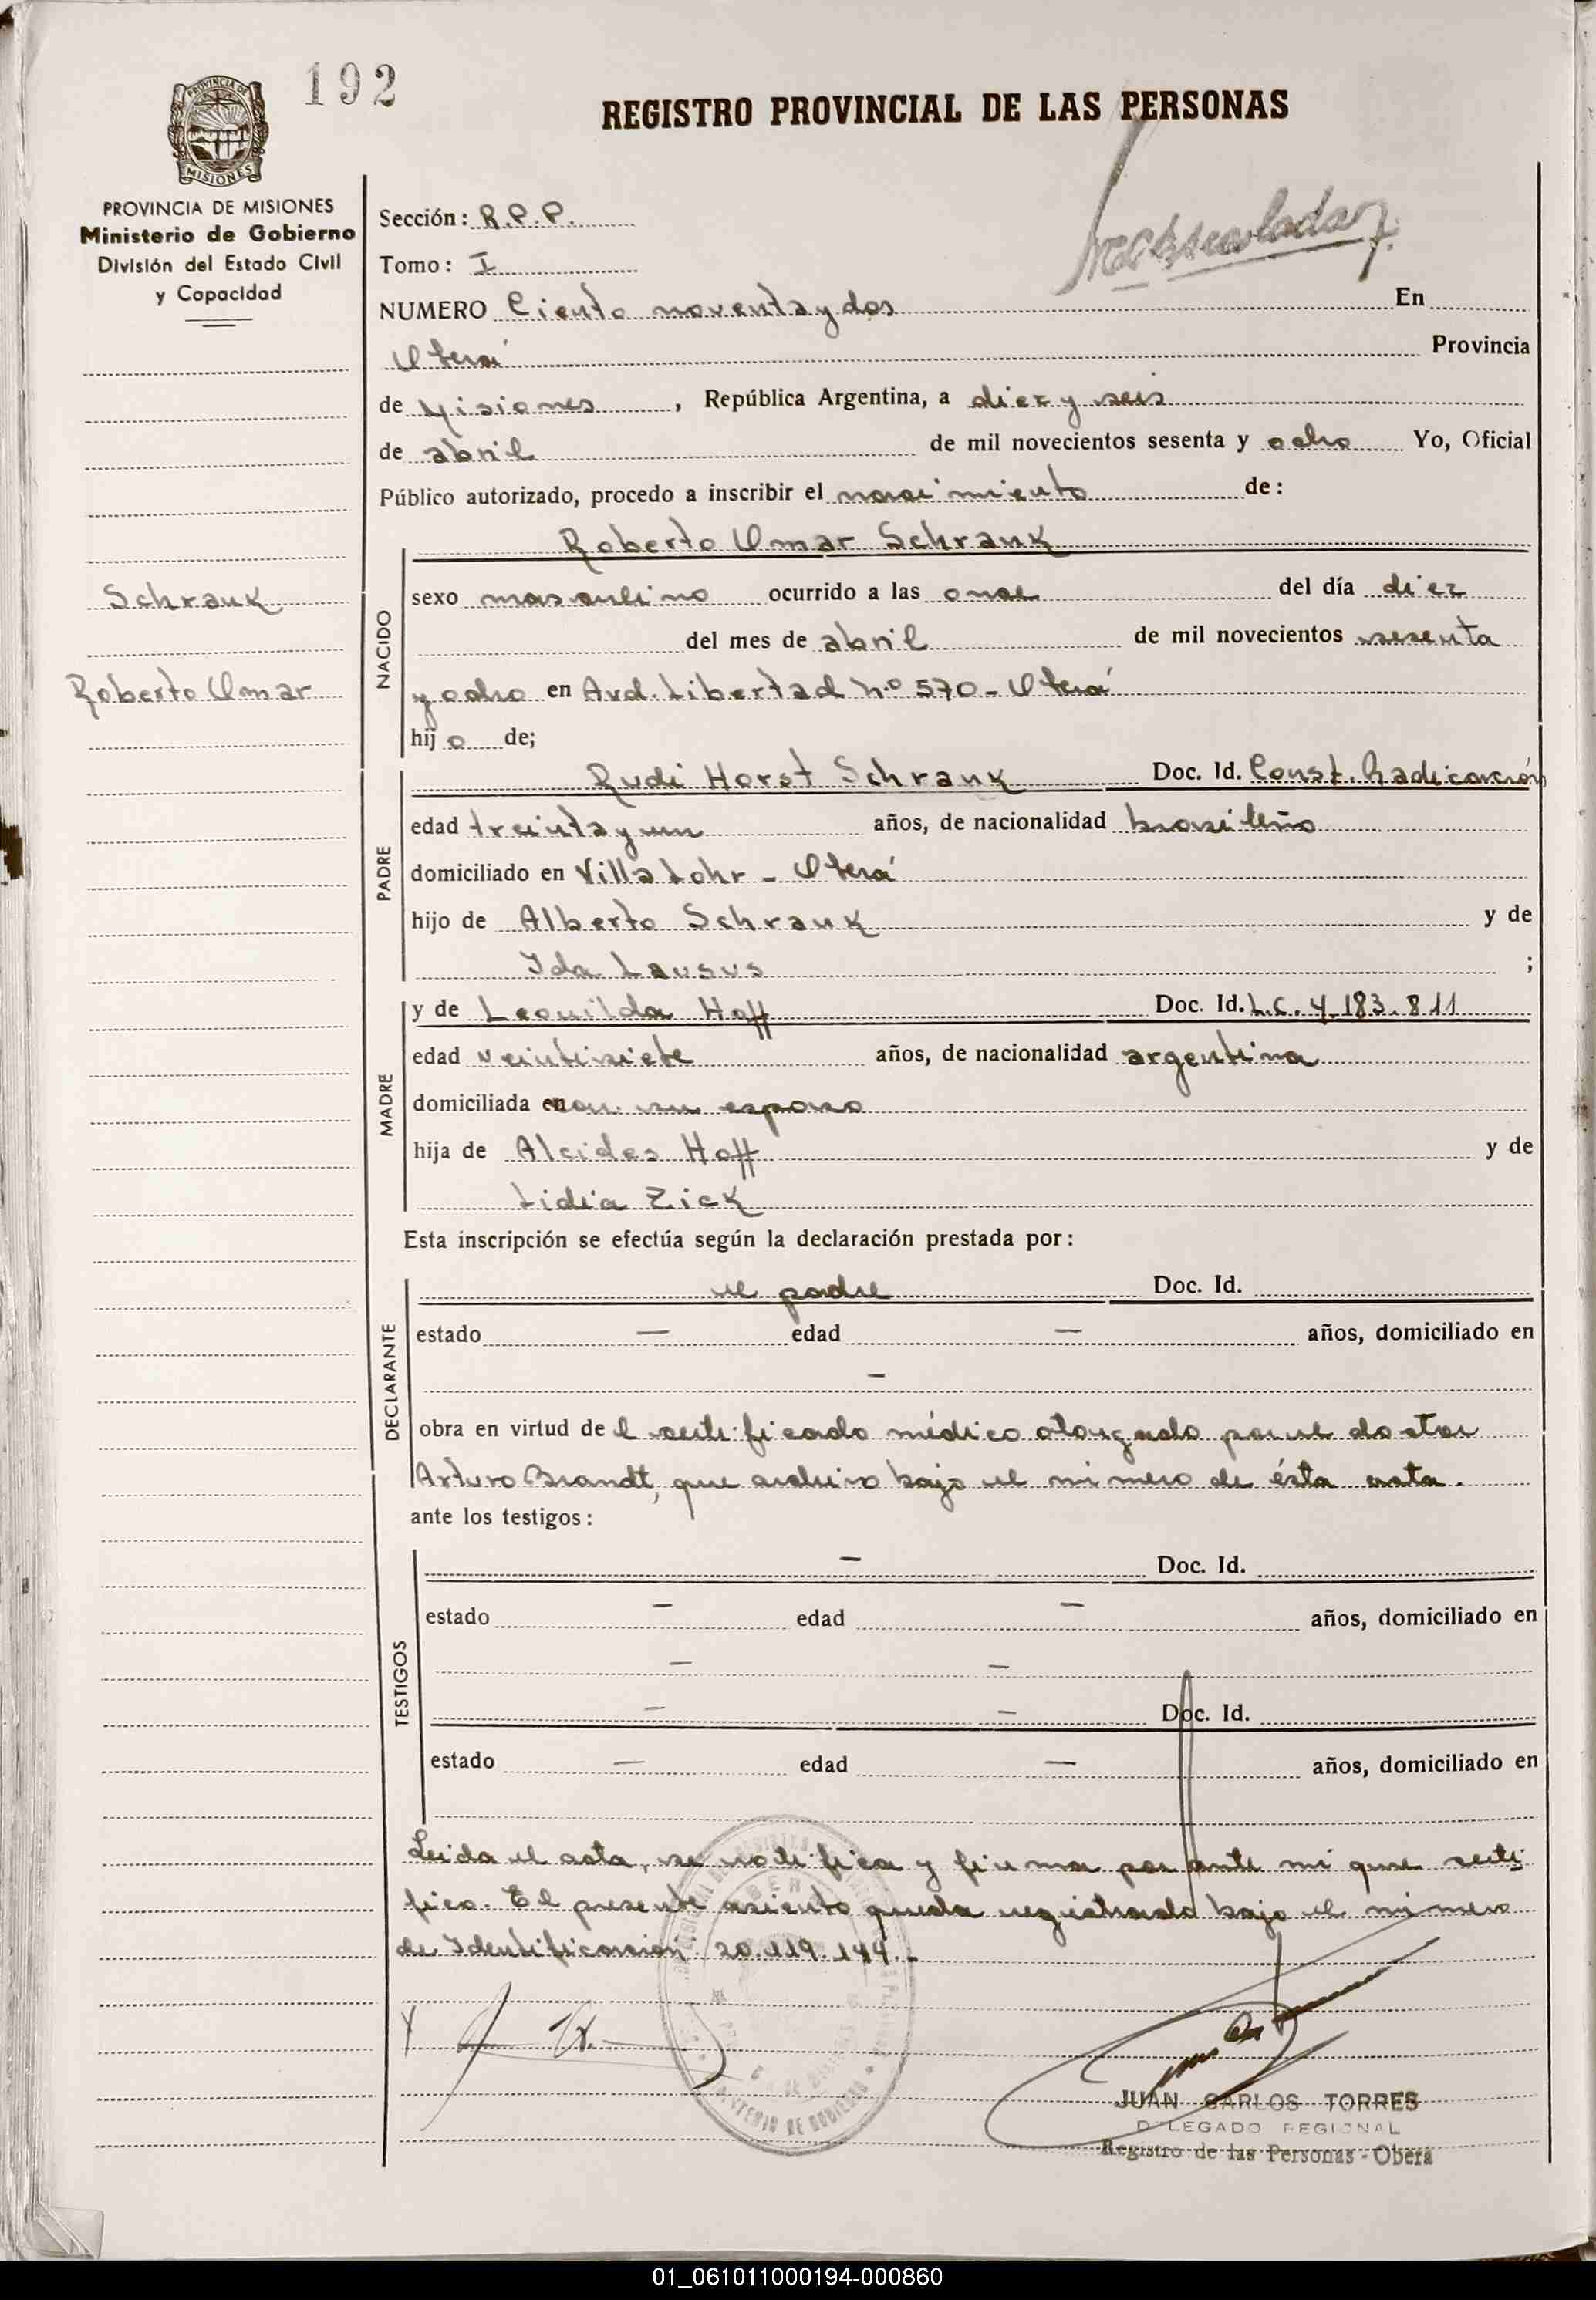 192
REGISTRO PROVINCIAL DE LAS PERSONAS
PROVINCIA DE
MISIONES
PROVINCIA DE MISIONES
Ministerio de Gobierno
División del Estado Civil
y Capacidad
Sección: R.P.P.
Tomo: I
NUMERO Ciento noventa y dos En
Oberá Provincia
de Misiones, República Argentina, a diez y seis
de abril de mil novecientos sesenta y ocho Yo, Oficial
Público autorizado, procedo a inscribir el nacimiento de:
Schrank
Roberto Omar
NACIDO
Roberto Omar Schrank
sexo masculino ocurrido a las once del día diez
del mes de abril de mil novecientos sesenta
y ocho en Avd. Libertad N.º 570 - Oberá
hijo de;
PADRE
Rudi Horst Schrank Doc. Id. Const. Radicación
edad treinta y un años, de nacionalidad brasileño
domiciliado en Villa Lohr - Oberá
hijo de Alberto Schrank y de
Ida Lausus ;
MADRE
y de Leonilda Hoff Doc. Id. L.C. 4.183.811
edad veintisiete años, de nacionalidad argentina
domiciliada en con su esposo
hija de Alcides Hoff y de
Lidia Zick
Esta inscripción se efectúa según la declaración prestada por:
DECLARANTE
el padre Doc. Id.
estado — edad — años, domiciliado en
—
obra en virtud del certificado médico otorgado por el doctor
Arturo Brandt, que archivo bajo el número de ésta acta.
ante los testigos:
TESTIGOS
— Doc. Id.
estado — edad — años, domiciliado en
— —
— — Doc. Id.
estado — edad — años, domiciliado en
Leida el acta, se notifica y firma por ante mi que certi
fico. El presente asiento queda registrado bajo el número
de Identificación 20.119.144.-
JUAN CARLOS TORRES
DELEGADO REGIONAL
Registro de las Personas - Oberá
01_061011000194-000860